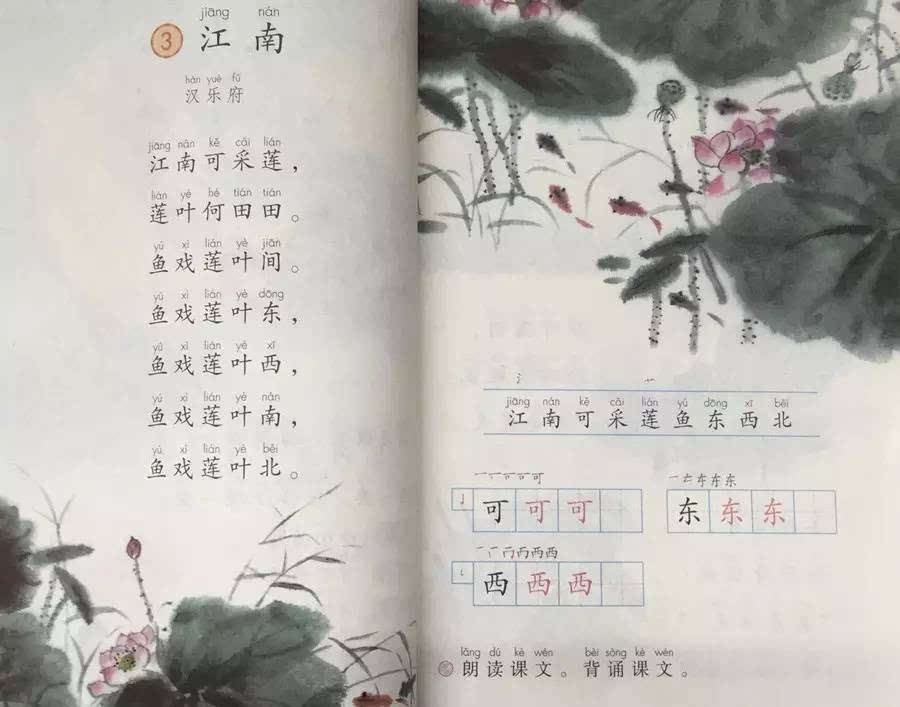 jiāng nán
3 江南
hàn yuè fǔ
汉乐府
jiāng nán kě cǎi lián
江南可采莲，
lián yè hé tián tián
莲叶何田田。
yú xì lián yè jiān
鱼戏莲叶间。
yú xì lián yè dōng
鱼戏莲叶东，
yú xì lián yè xī
鱼戏莲叶西，
yú xì lián yè nán
鱼戏莲叶南，
yú xì lián yè běi
鱼戏莲叶北。
氵 艹
jiāng nán kě cǎi lián yú dōng xī běi
江南可采莲鱼东西北
可可可
东东东
西西西
lǎng dú kè wén bèi sòng kè wén
朗读课文。背诵课文。